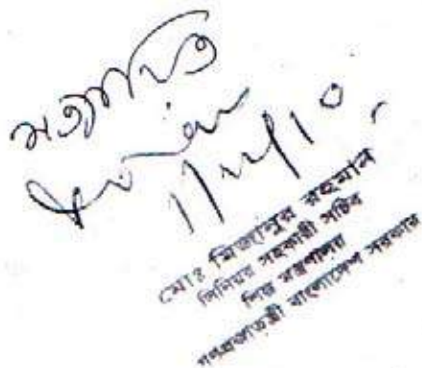 সত্যায়িত
১/১২/১০
মোঃ মিজানুর রহমান
সিনিয়র সহকারী সচিব
শিল্প মন্ত্রণালয়
গণপ্রজাতন্ত্রী বাংলাদেশ সরকার